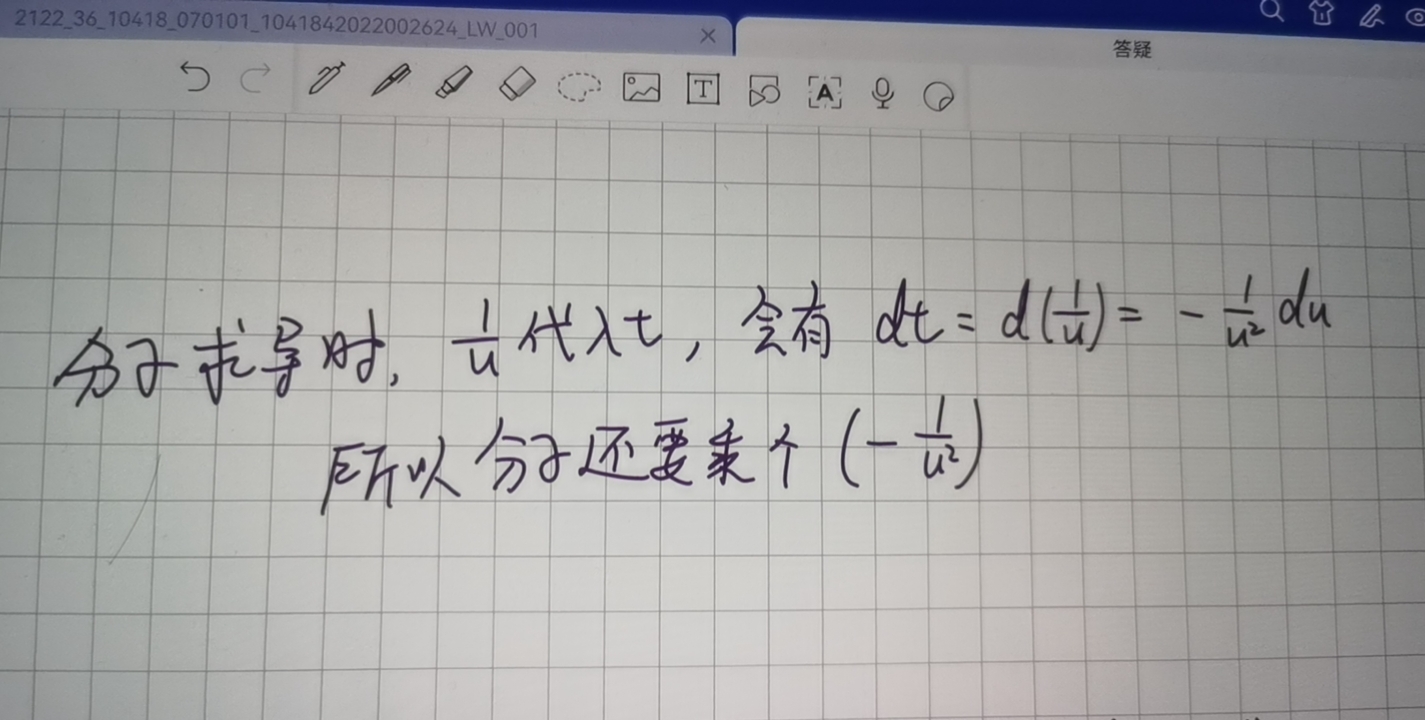 2122_36_10418_070101_1041842022002624_LW_001
答疑
T
A
分子求导时, 1/u 代入t, 会有 dt = d(1/u) = - 1/u² du
所以 分子还要乘个 (- 1/u²)